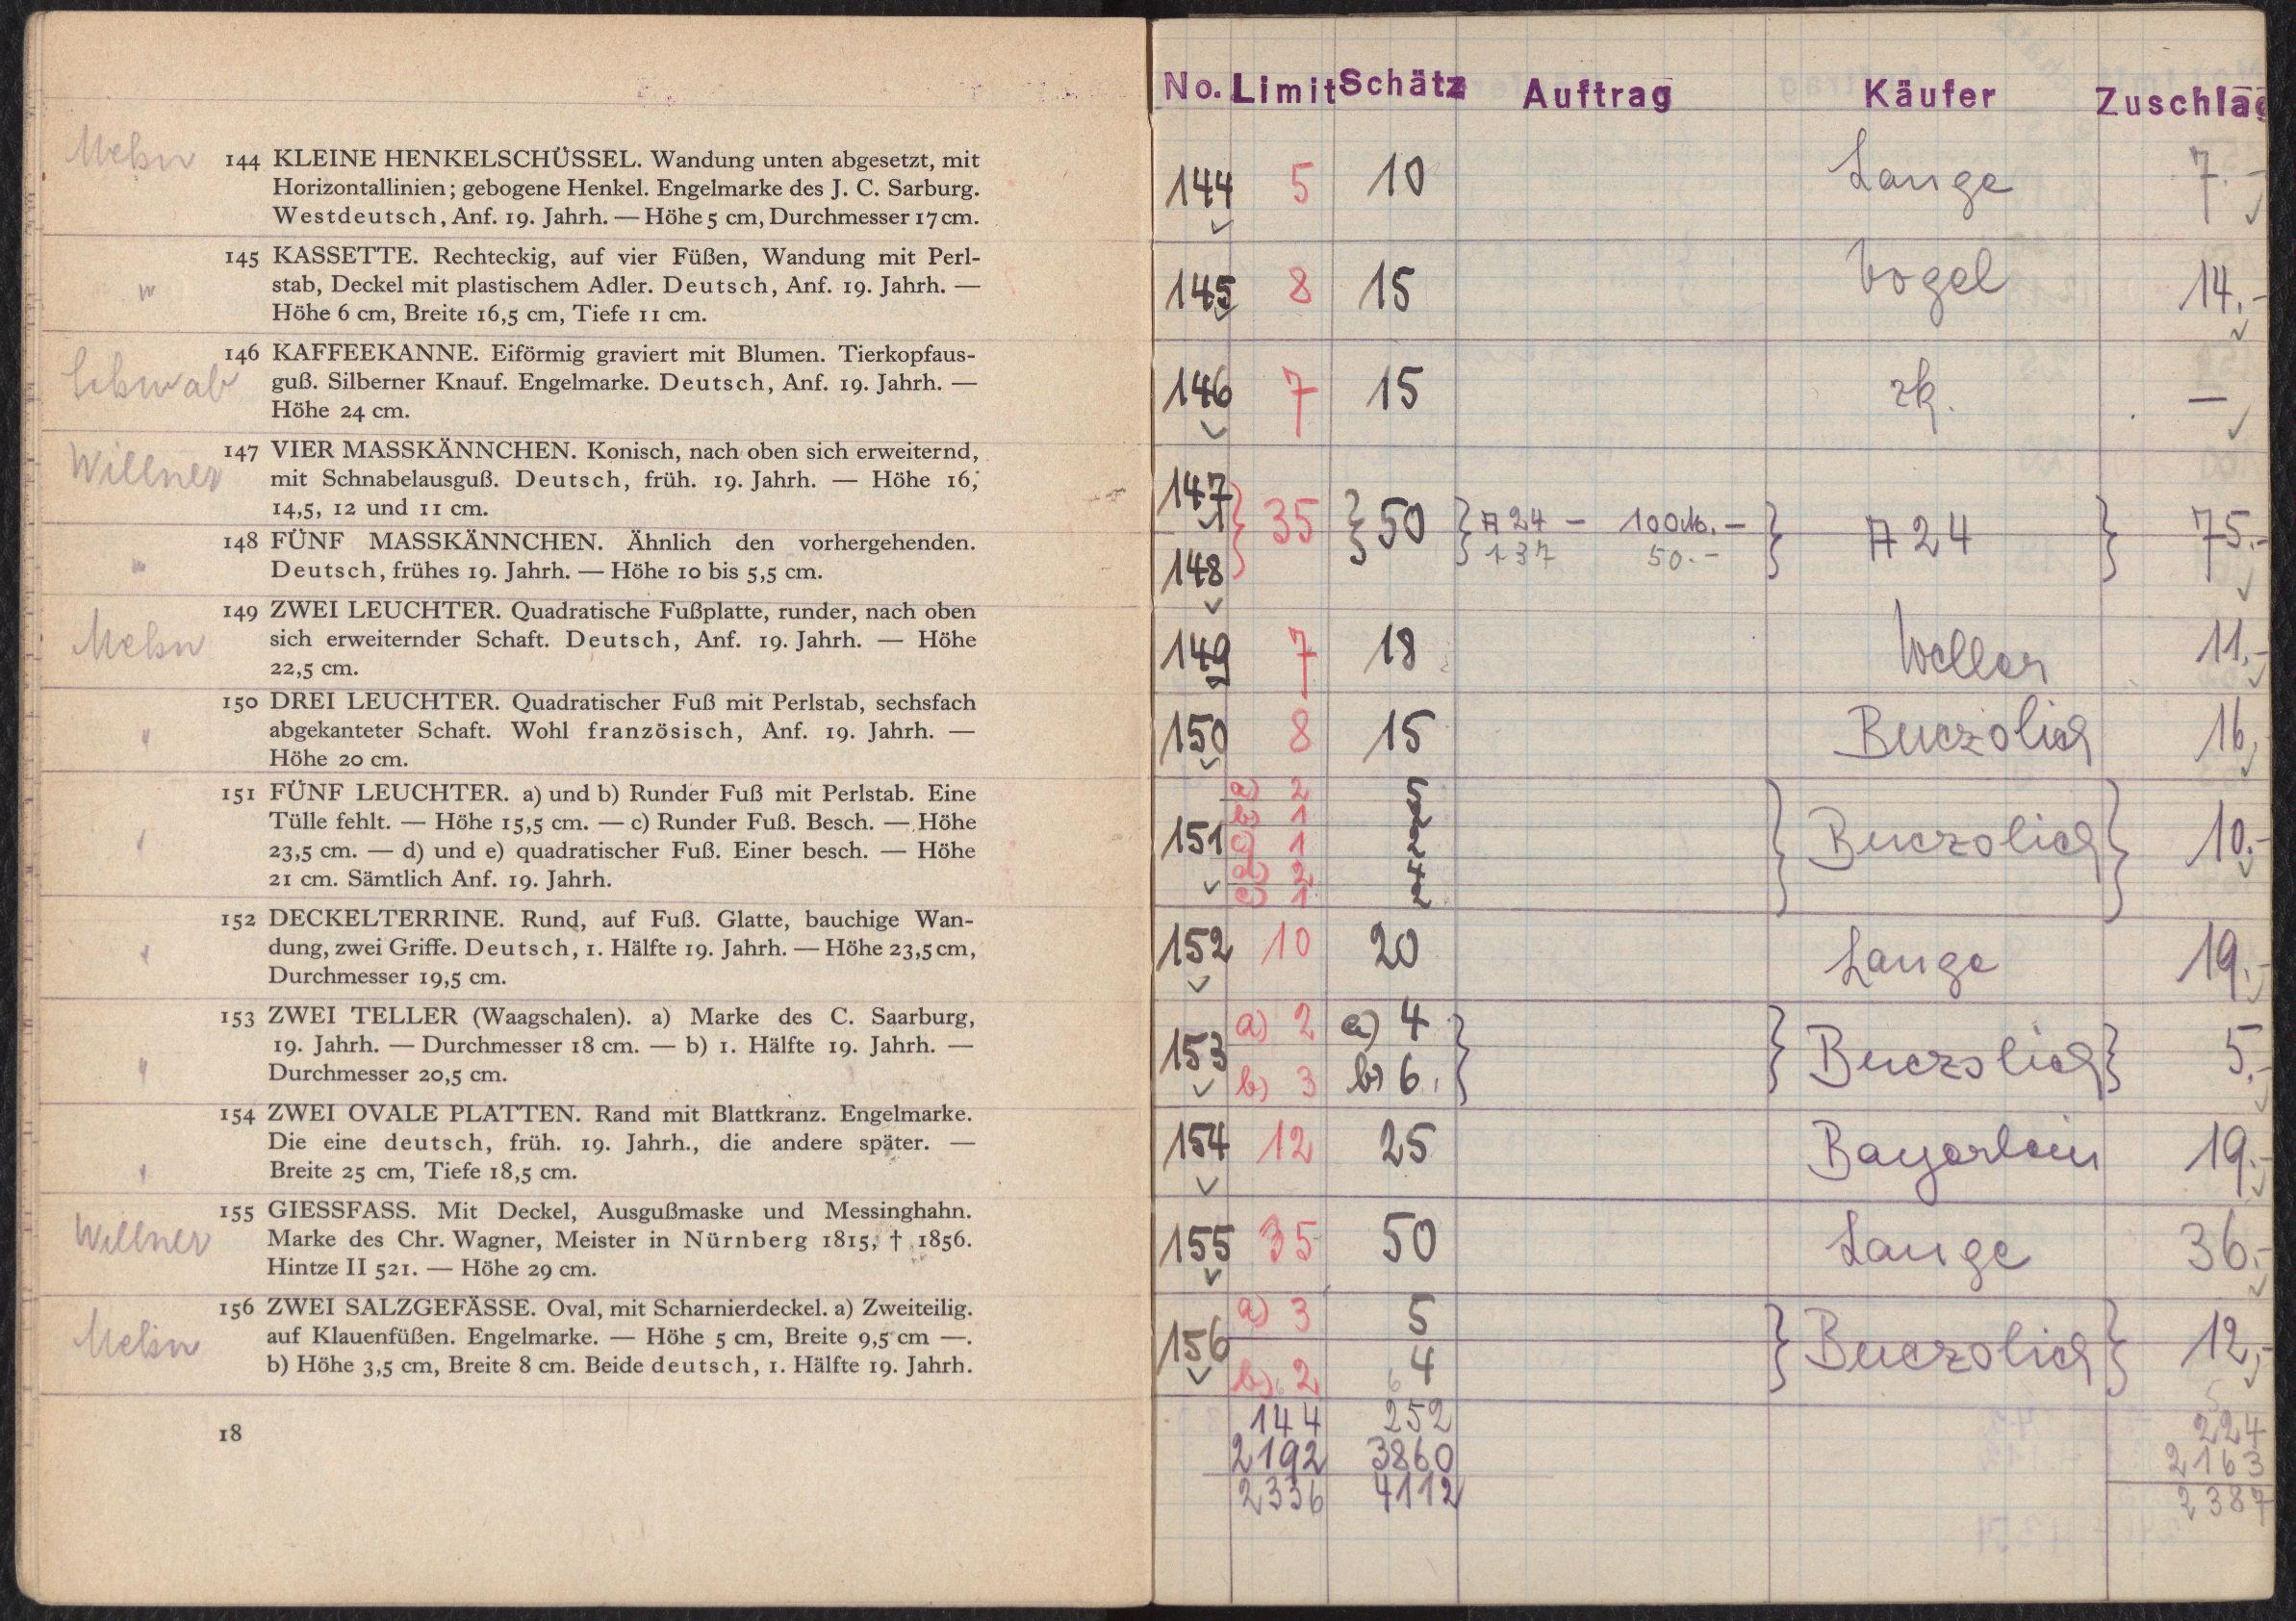 Mehn
144 KLEINE HENKELSCHÜSSEL. Wandung unten abgesetzt, mit
Horizontallinien; gebogene Henkel. Engelmarke des J. C. Sarburg.
Westdeutsch, Anf. 19. Jahrh. — Höhe 5 cm, Durchmesser 17 cm.
"
145 KASSETTE. Rechteckig, auf vier Füßen, Wandung mit Perl-
stab, Deckel mit plastischem Adler. Deutsch, Anf. 19. Jahrh. —
Höhe 6 cm, Breite 16,5 cm, Tiefe 11 cm.
Schwab
146 KAFFEEKANNE. Eiförmig graviert mit Blumen. Tierkopfaus-
guß. Silberner Knauf. Engelmarke. Deutsch, Anf. 19. Jahrh. —
Höhe 24 cm.
Willner
147 VIER MASSKÄNNCHEN. Konisch, nach oben sich erweiternd,
mit Schnabelausguß. Deutsch, früh. 19. Jahrh. — Höhe 16,
14,5, 12 und 11 cm.
"
148 FÜNF MASSKÄNNCHEN. Ähnlich den vorhergehenden.
Deutsch, frühes 19. Jahrh. — Höhe 10 bis 5,5 cm.
Mehn
149 ZWEI LEUCHTER. Quadratische Fußplatte, runder, nach oben
sich erweiternder Schaft. Deutsch, Anf. 19. Jahrh. — Höhe
22,5 cm.
"
150 DREI LEUCHTER. Quadratischer Fuß mit Perlstab, sechsfach
abgekanteter Schaft. Wohl französisch, Anf. 19. Jahrh. —
Höhe 20 cm.
"
151 FÜNF LEUCHTER. a) und b) Runder Fuß mit Perlstab. Eine
Tülle fehlt. — Höhe 15,5 cm. — c) Runder Fuß. Besch. — Höhe
23,5 cm. — d) und e) quadratischer Fuß. Einer besch. — Höhe
21 cm. Sämtlich Anf. 19. Jahrh.
"
152 DECKELTERRINE. Rund, auf Fuß. Glatte, bauchige Wan-
dung, zwei Griffe. Deutsch, 1. Hälfte 19. Jahrh. — Höhe 23,5 cm,
Durchmesser 19,5 cm.
"
153 ZWEI TELLER (Waagschalen). a) Marke des C. Saarburg,
19. Jahrh. — Durchmesser 18 cm. — b) 1. Hälfte 19. Jahrh. —
Durchmesser 20,5 cm.
"
154 ZWEI OVALE PLATTEN. Rand mit Blattkranz. Engelmarke.
Die eine deutsch, früh. 19. Jahrh., die andere später. —
Breite 25 cm, Tiefe 18,5 cm.
Willner
155 GIESSFASS. Mit Deckel, Ausgußmaske und Messinghahn.
Marke des Chr. Wagner, Meister in Nürnberg 1815, † 1856.
Hintze II 521. — Höhe 29 cm.
Mehn
156 ZWEI SALZGEFÄSSE. Oval, mit Scharnierdeckel. a) Zweiteilig.
auf Klauenfüßen. Engelmarke. — Höhe 5 cm, Breite 9,5 cm —.
b) Höhe 3,5 cm, Breite 8 cm. Beide deutsch, 1. Hälfte 19. Jahrh.
18
No. Limit Schätz Auftrag Käufer Zuschlag
144 5 10 Lange 7.-
145 8 15 Vogel 14.-
146 7 15 zk. —
147 } 35 } 50 } A 24 - 100 M. - } A 24 } 75.-
148 137 50.-
149 7 18 Weller 11,-
150 8 15 Buczolich 16,-
151 a) 2 5 } Buczolich } 10.-
b) 1 2
c) 1 2
d) 2 4
e) 1 2
152 10 20 Lange 19.-
153 a) 2 a) 4 } } Buczolich } 5.-
b) 3 b) 6.
154 12 25 Bayerlein 19.-
155 35 50 Lange 36.-
156 a) 3 5 } Buczolich } 12,-
b) 2 4
144 252 224
2192 3860 2163
2336 4112 2387